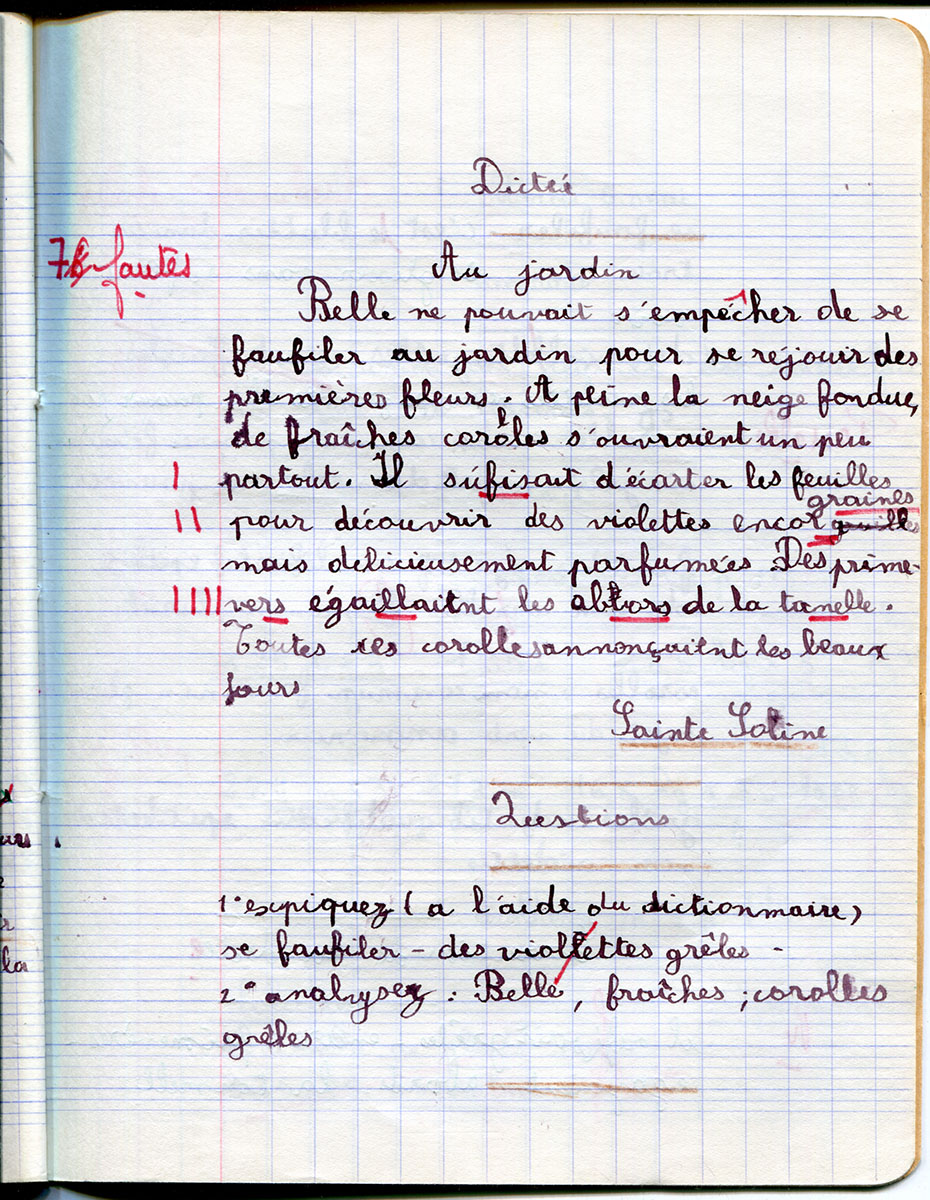 Dictée
7 fautes
Au jardin
Belle ne pouvait s'empêcher de se
faufiler au jardin pour se réjouir des
premières fleurs. A peine la neige fondue,
de fraîches corolles s'ouvraient un peu
I partout. Il sufisait d'écarter les feuilles
graines
II pour découvrir des violettes encor
mais délicieusement parfumées. Des prime-
IIII vers égaillaitnt les abtors de la tonelle.
Toutes ces corolles annonçaient les beaux
jours
Sainte Soline
Questions
1° expiquez (a l'aide du dictionnaire)
se faufiler - des violettes grêles -
2° analysez : Belle, fraîches ; corolles
grêles
urs .
la